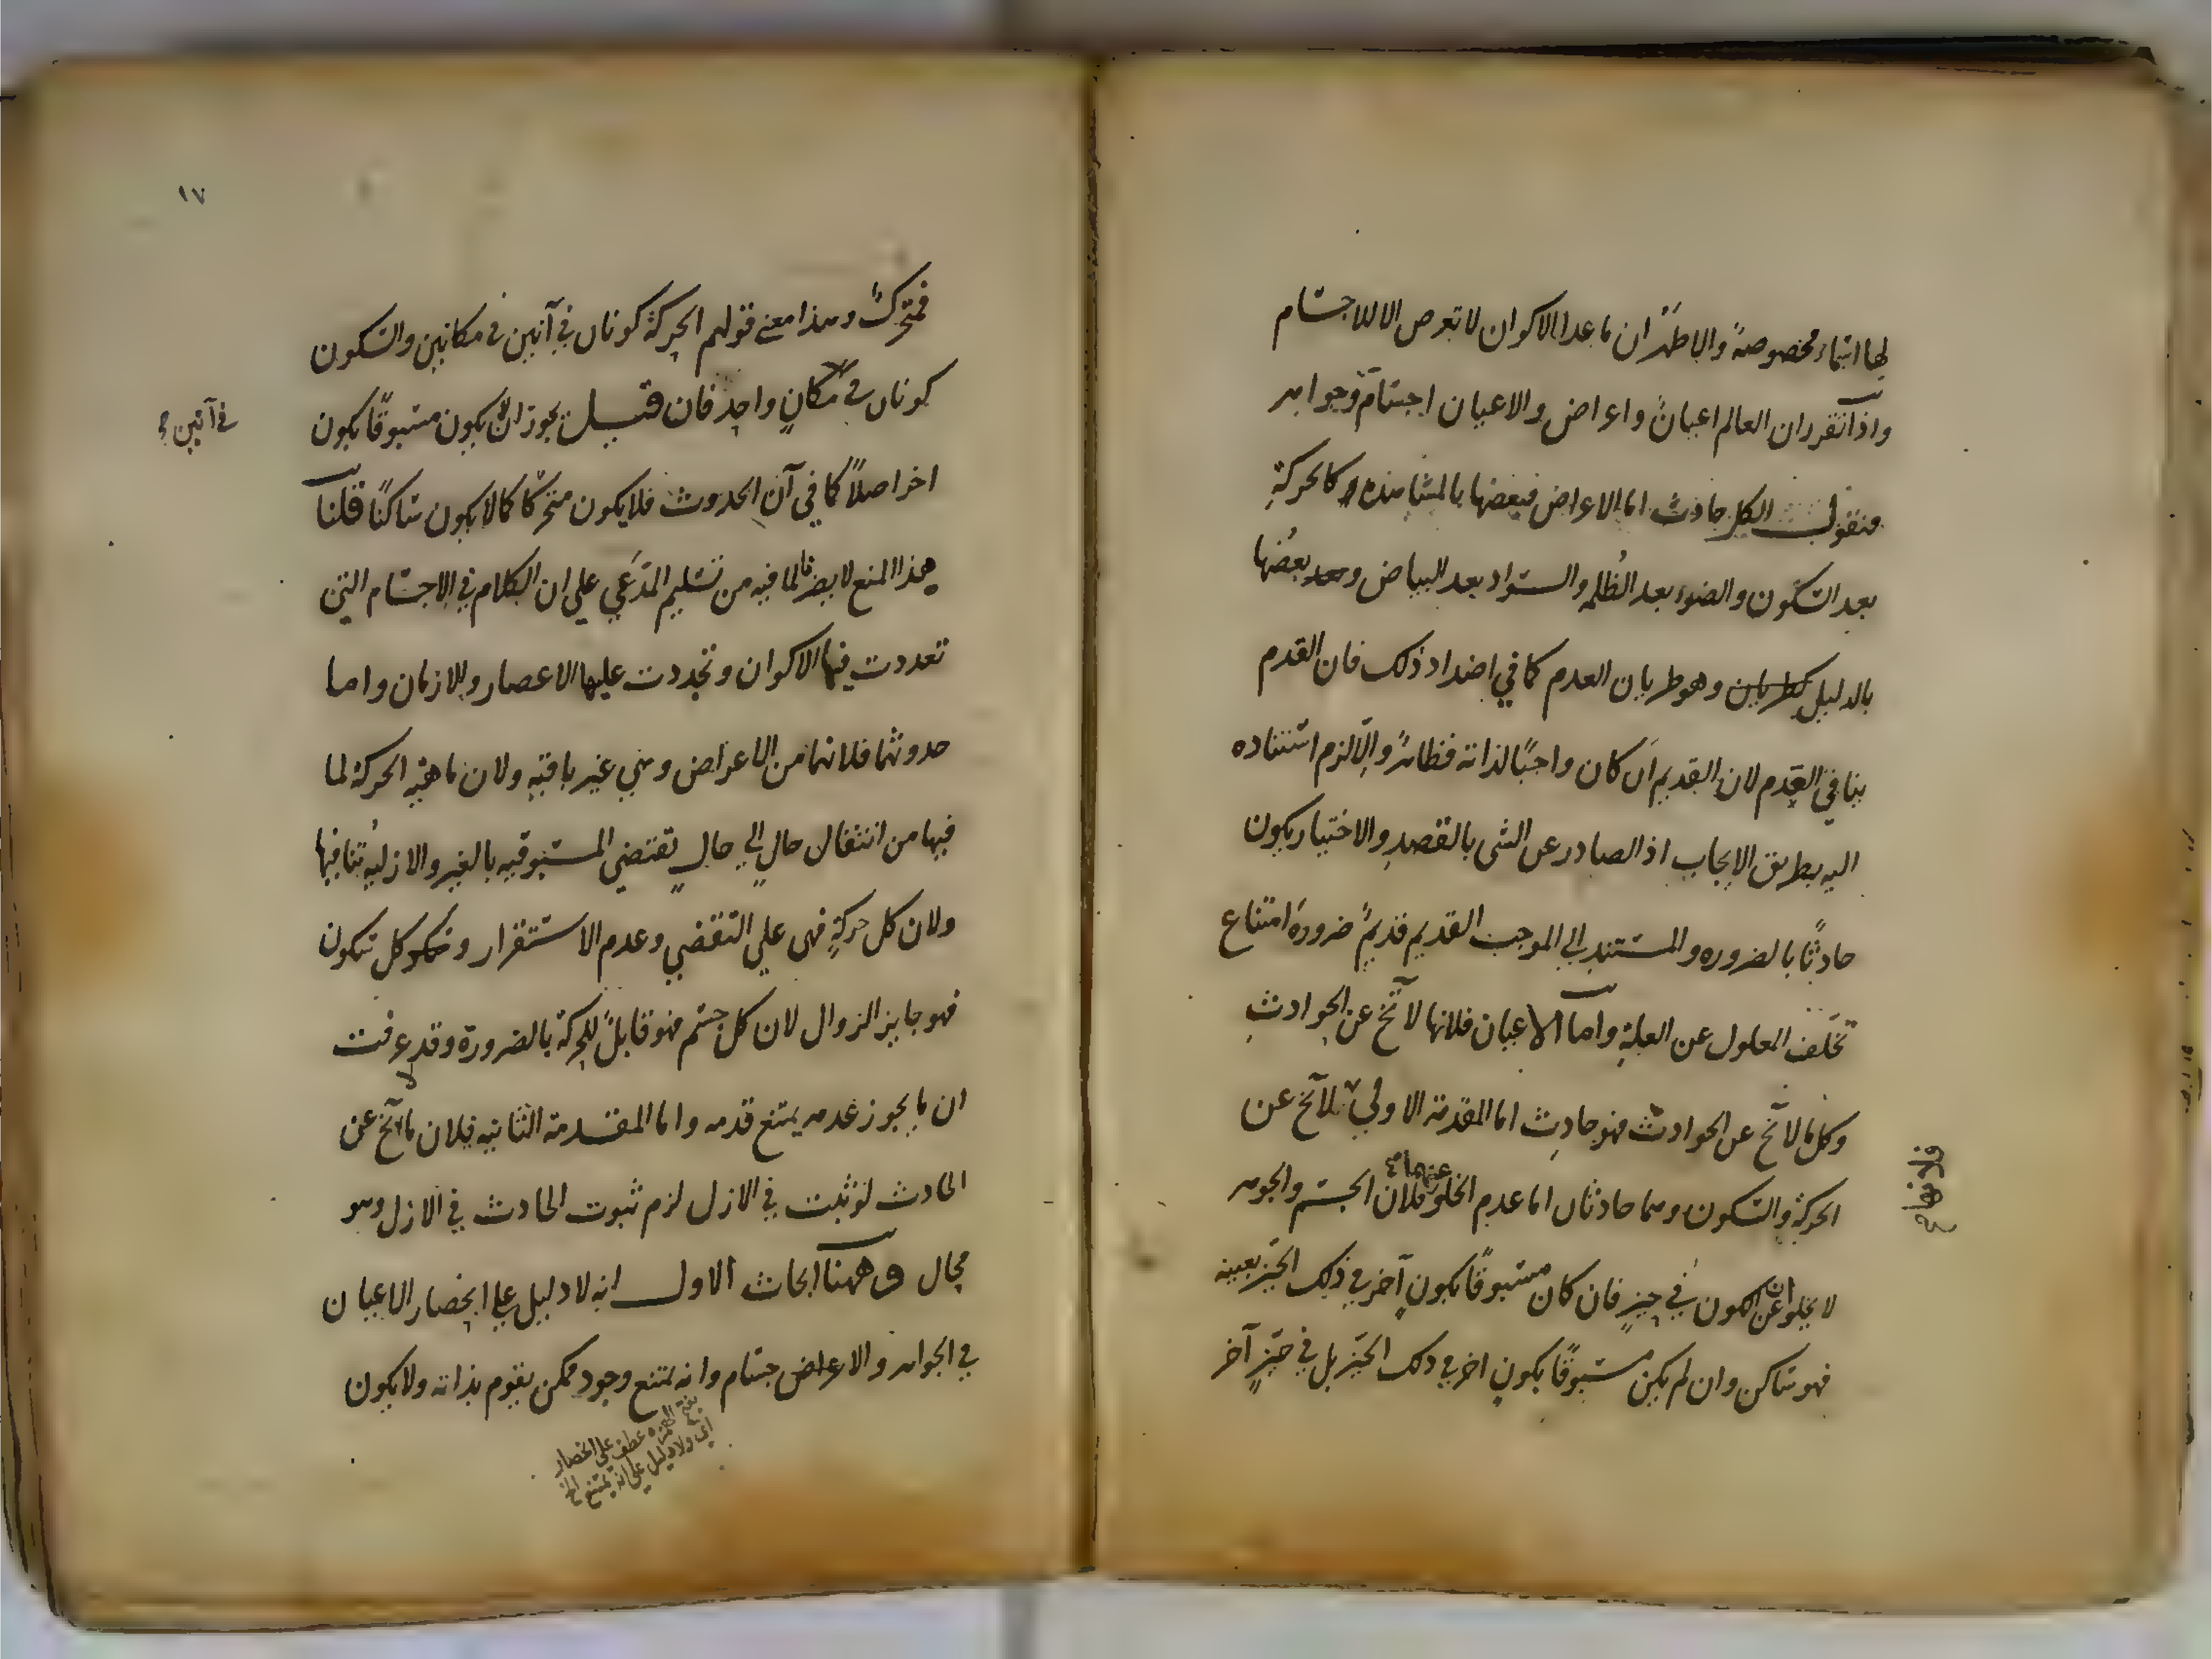 لها اسماء مخصوصة والاظهر ان ما عدا الاكوان لا تعرض الا للاجسام
واذا تقرر ان العالم اعيان واعراض والاعيان اجسام وجواهر
فنقول الكل حادث اما الاعراض فبعضها بالمشاهدة كالحركة
بعد السكون والضوء بعد الظلمه والسواد بعد البياض وبعضها
بالدليل وهو طريان العدم كما في اضداد ذلك فان القدم
ينافي العدم لان القديم ان كان واجبًا لذاته فظاهرٌ والّا لزم استناده
اليه بطريق الايجاب اذ الصادر عن الشى بالقصد والاختيار يكون
حادثًا بالضروره والمستند الي الموجب القديم قديمٌ ضرورة امتناع
تخلف المعلول عن العلة واما الاعيان فلانها لا تخ عن الحوادثِ
وكل ما لا تخ عن الحوادث فهو حادث اما المقدمة الاولي فلانها لا تخ عن
الحركة والسكون وهما حادثان اما عدم الخلو عنهما فلان الجسم والجوهر
لا يخلو عن الكون في حيزٍ فان كان مسبوقًا بكونٍ آخر في ذلك الحيّز بعينه
فهو ساكن وان لم يكن مسبوقًا بكون اخر في ذلك الحيّز بل في حيّزٍ آخر
١٧
فمتحركٌ وهذا معنے قولهم الحركة كونان في آنين في مكانين والسكون
كونان في مكانٍ واحد فان قيل يجوز ان يكون مسبوقًا بكون
في آنين
اخر اصلاً كما في آن الحدوث فلا يكون متحركًا كما لا يكون ساكنًا قلنا
هذا المنع لا يضرنا لما فيه من تسليم المدّعي علي ان الكلام في الاجسام التي
تعددت فيها الاكوان وتجددت عليها الاعصار والازمان واما
حدوثهما فلانهما من الاعراض وهي غير باقيه ولان ماهيّه الحركة لما
فيها من انتقال حالٍ الي حالٍ تقتضي المسبوقيه بالغير والازليه تنافيها
ولان كل حركةٍ فهي علي التقضي وعدم الاستقرار وكل سكون
فهو جايز الزوال لان كل جسم فهو قابلٌ للحركة بالضرورة وقد عرفت
ان ما يجوز عدمه يمتنع قدمه واما المقدمة الثانيه فلان ما لا تخ عن
الحادث لو ثبت في الازل لزم ثبوت الحادث في الازل وهو
محال وههنا ابحاث الاول انه لا دليل علي انحصار الاعيان
في الجواهر والاجسام وانه يمتنع وجود ممكن يقوم بذاته ولا يكون
بفتح الهمزه عطف على انحصار
اي ولا دليل على انه يمتنع الخ